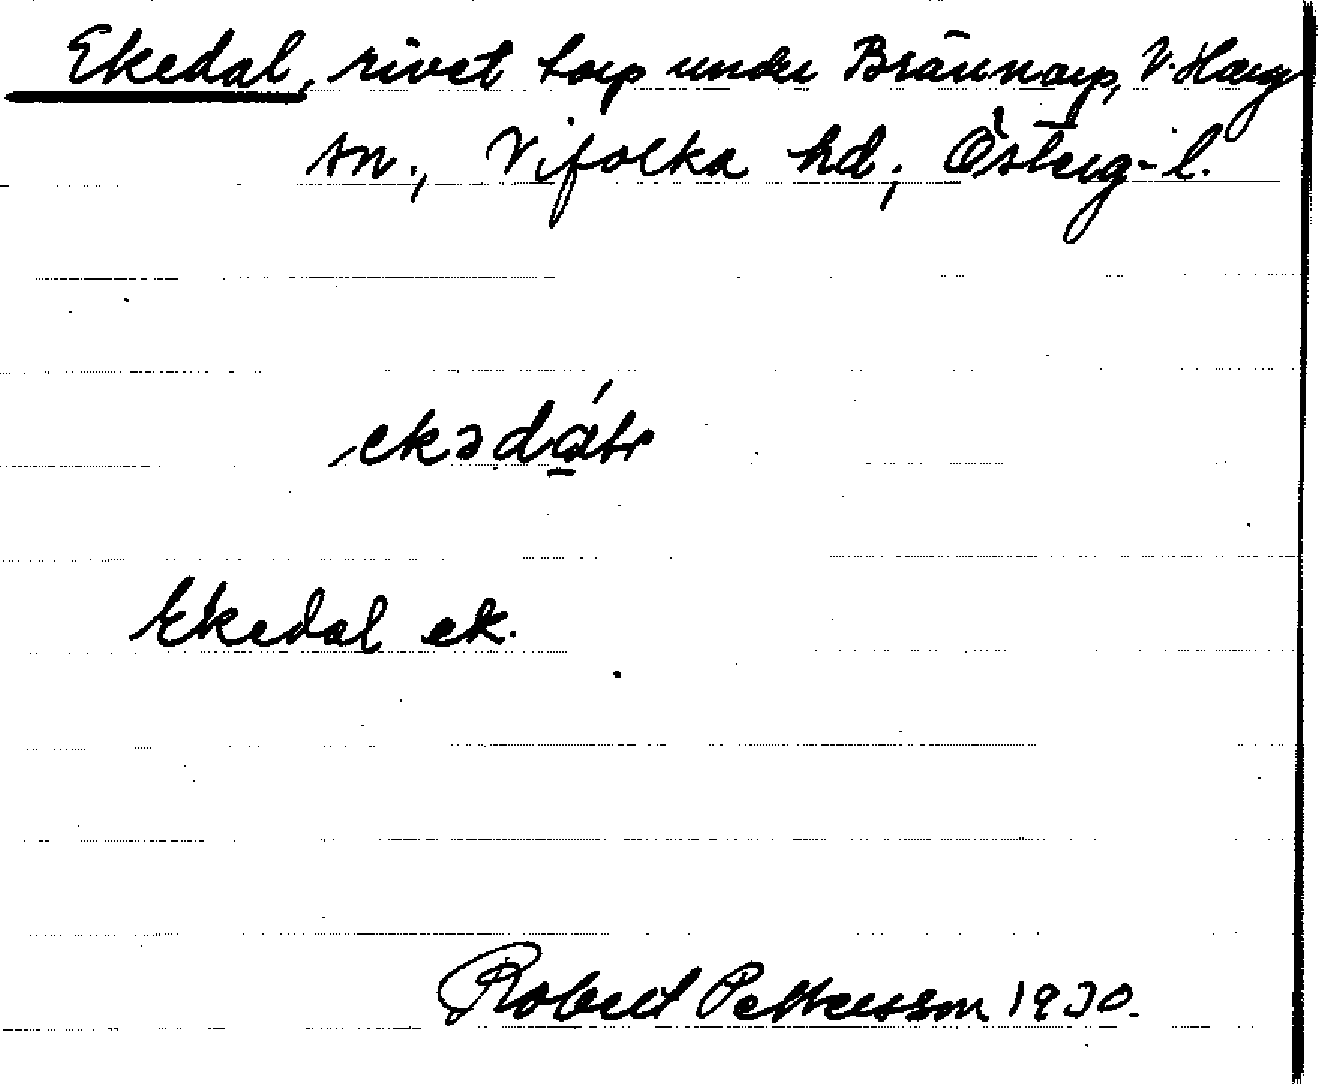 Ekedal, rivet torp under Brännarp, V. Harg
sn., Vifolka hd, Österg-l.
Ekedal ek.
Robert Pettersson 1930.